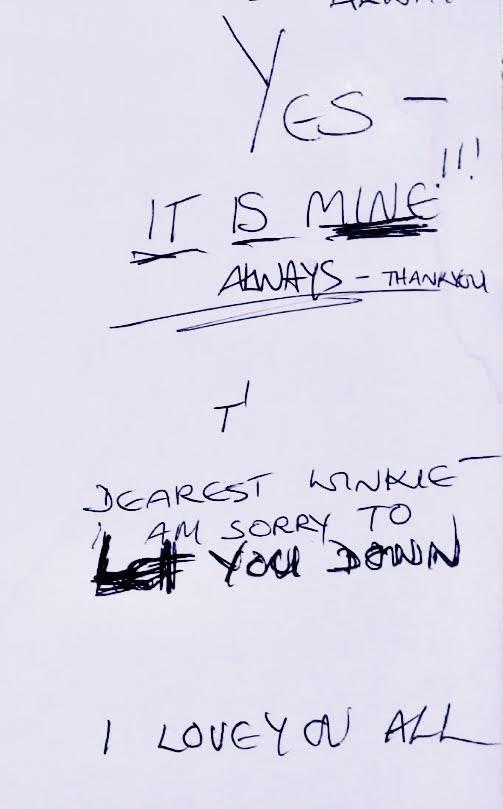 YES —
!!!
IT IS MINE
ALWAYS - THANKYOU
T'
DEAREST WINKIE —
I AM SORRY TO
Let YOU DOWN
I LOVE YOU ALL